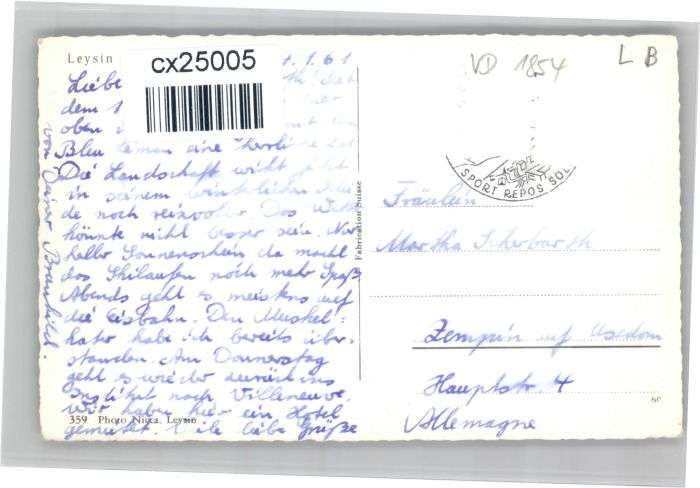 VD 1854
L B
Leysin
cx25005
1.61
Liebe
dem 1
oben
Bleu Léman eine herrliche Zeit
Die Landschaft wirkt jetzt
in seinem winterlichen
de noch reizvoller. Das Wetter
könnte nicht besser sein. Nur
heller Sonnenschein da macht
das Skilaufen noch mehr Spaß
Abends geht es meistens auf
die Eisbahn. Den Muskel=
kater habe ich bereits über-
standen. Am Donnerstag
geht es wieder zurück ins
Institut nach Villeneuve.
Wir haben hier ein Hotel
gemietet. Viele liebe Grüße
von Deiner Brunhild.
359 Photo Nicca, Leysin
Fabrication Suisse
SPORT REPOS SOL
Fräulein
Martha Scherbarth
Zempin auf Usedom
Hauptstr. 4
Allemagne